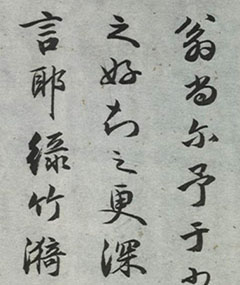 翁尚尔予于
之好知之更深
言耶绿竹漪